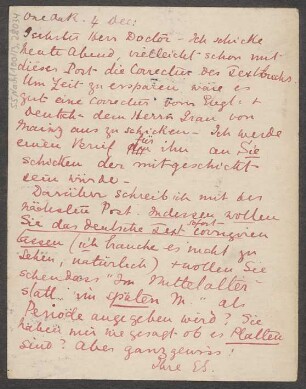 4 Dec:
Herr Doctor – Ich schicke
heute Abend, vielleicht schon mit
dieser Post die Correctur des Textbuchs.
Um Zeit zu ersparen wäre es
gut eine Correctur vom Engl: +
Deutsch – dem Herrn von
Mainz aus zu schicken – Ich werde
einen für ihn an Sie
schicken der mitgeschickt
sein würde –
Darüber schreib ich mit der
nächsten Post. Indessen wollen
Sie das deutsche Text sofort corrigiren
lassen (ich brauche es nicht zu
sehen, natürlich) + wollen Sie
sehen dass "Im Mittelalter"
statt "im späten M." als
Periode angegeben wird? Sie
haben mir nie gesagt ob es Platten
sind? Aber ganz gewiss!
Ihre ES.